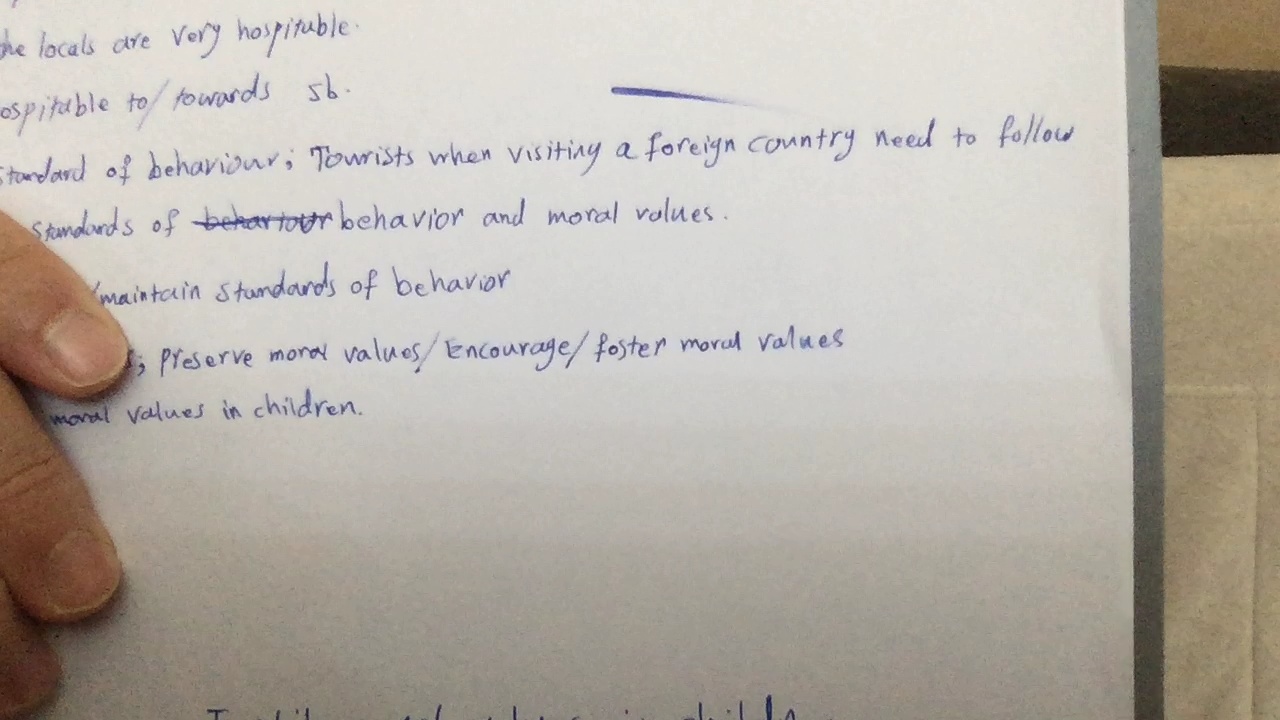 he locals are very hospitable.
ospitable to/towards sb.
standard of behaviour; Tourists when visiting a foreign country need to follow
standards of behaviour behavior and moral values.
/maintain standards of behavior
s; preserve moral values/Encourage/foster moral values
moral values in children.